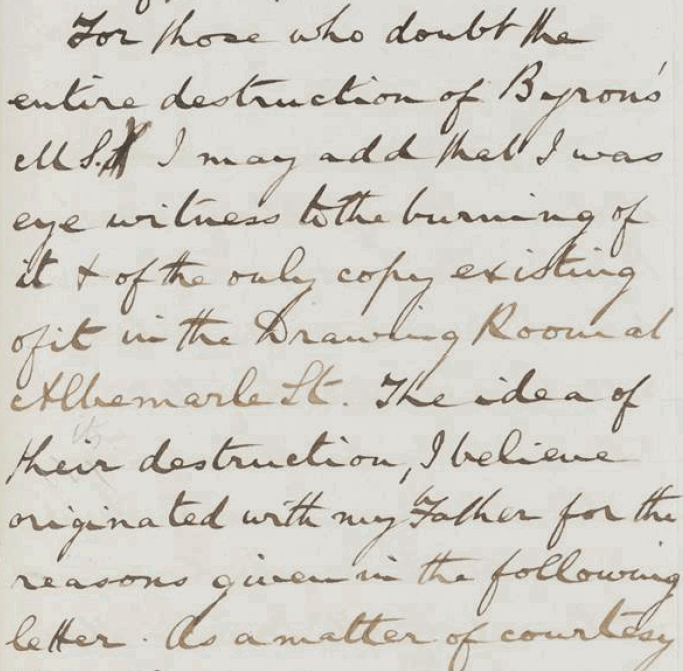 For those who doubt the
entire destruction of Byron's
MS. I may add that I was
eye witness to the burning of
it & of the only copy existing
of it in the Drawing Room at
Albemarle St. The idea of
its
their destruction, I believe
originated with my Father for the
reasons given in the following
letter. As a matter of courtesy